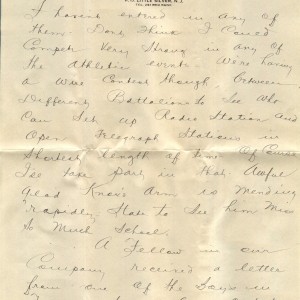 P.O. LITTLE SILVER, N.J.
I havent entered in any of
them. Dont think I could
compete very strong in any of
the Athletic events. We're having
a Wire Contest though, between
Different Battalions to See Who
Can Set up Radio Station and
Open Telegraph Stations in
Shortest length of time. Of Course
I'ee take part in that. Awful
glad Knox's Arm is Mending
rapidly. Hate to See him Miss
So Much School.
A Fellow in our
Company received a letter
from one of the boys in